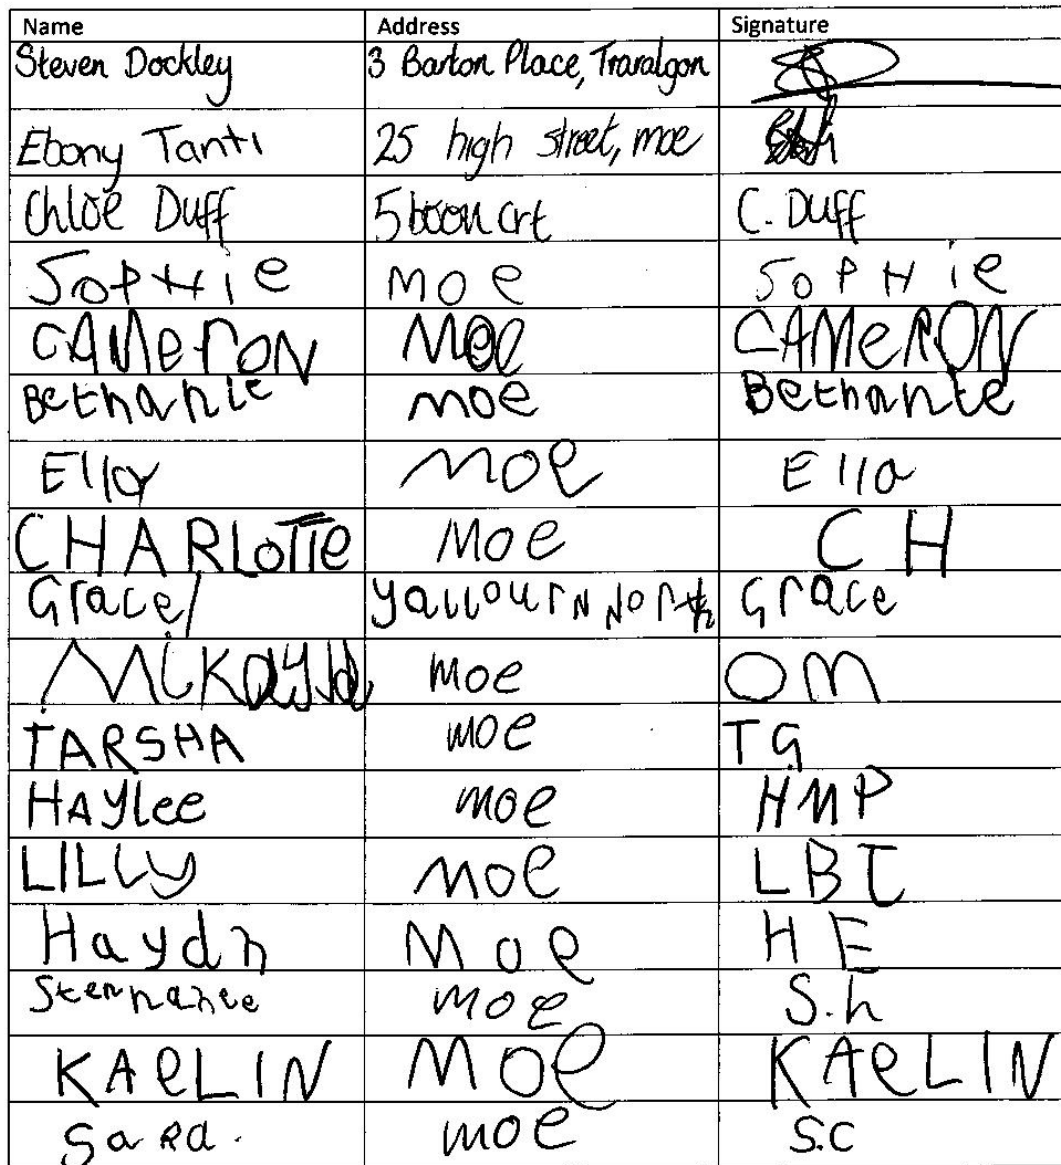 Name Address Signature
Steven Dockley 3 Barton Place, Traralgon
Ebony Tanti 25 high street, moe
Chloe Duff 5 boon crt C. Duff
SOPHie MOe SOPHie
CAMeRON MOe CAMeRON
Bethanie moe Bethanie
Ella MOe Ella
CHARLOTTe MOe CH
Grace yallourn North Grace
Mckayla moe OM
TARSHA moe TG
HAYlee moe HMP
LILLy MOe LBT
Haydn Moe HE
moe S.h
KAeLIN MOe KAeLIN
SaRa. moe S.C